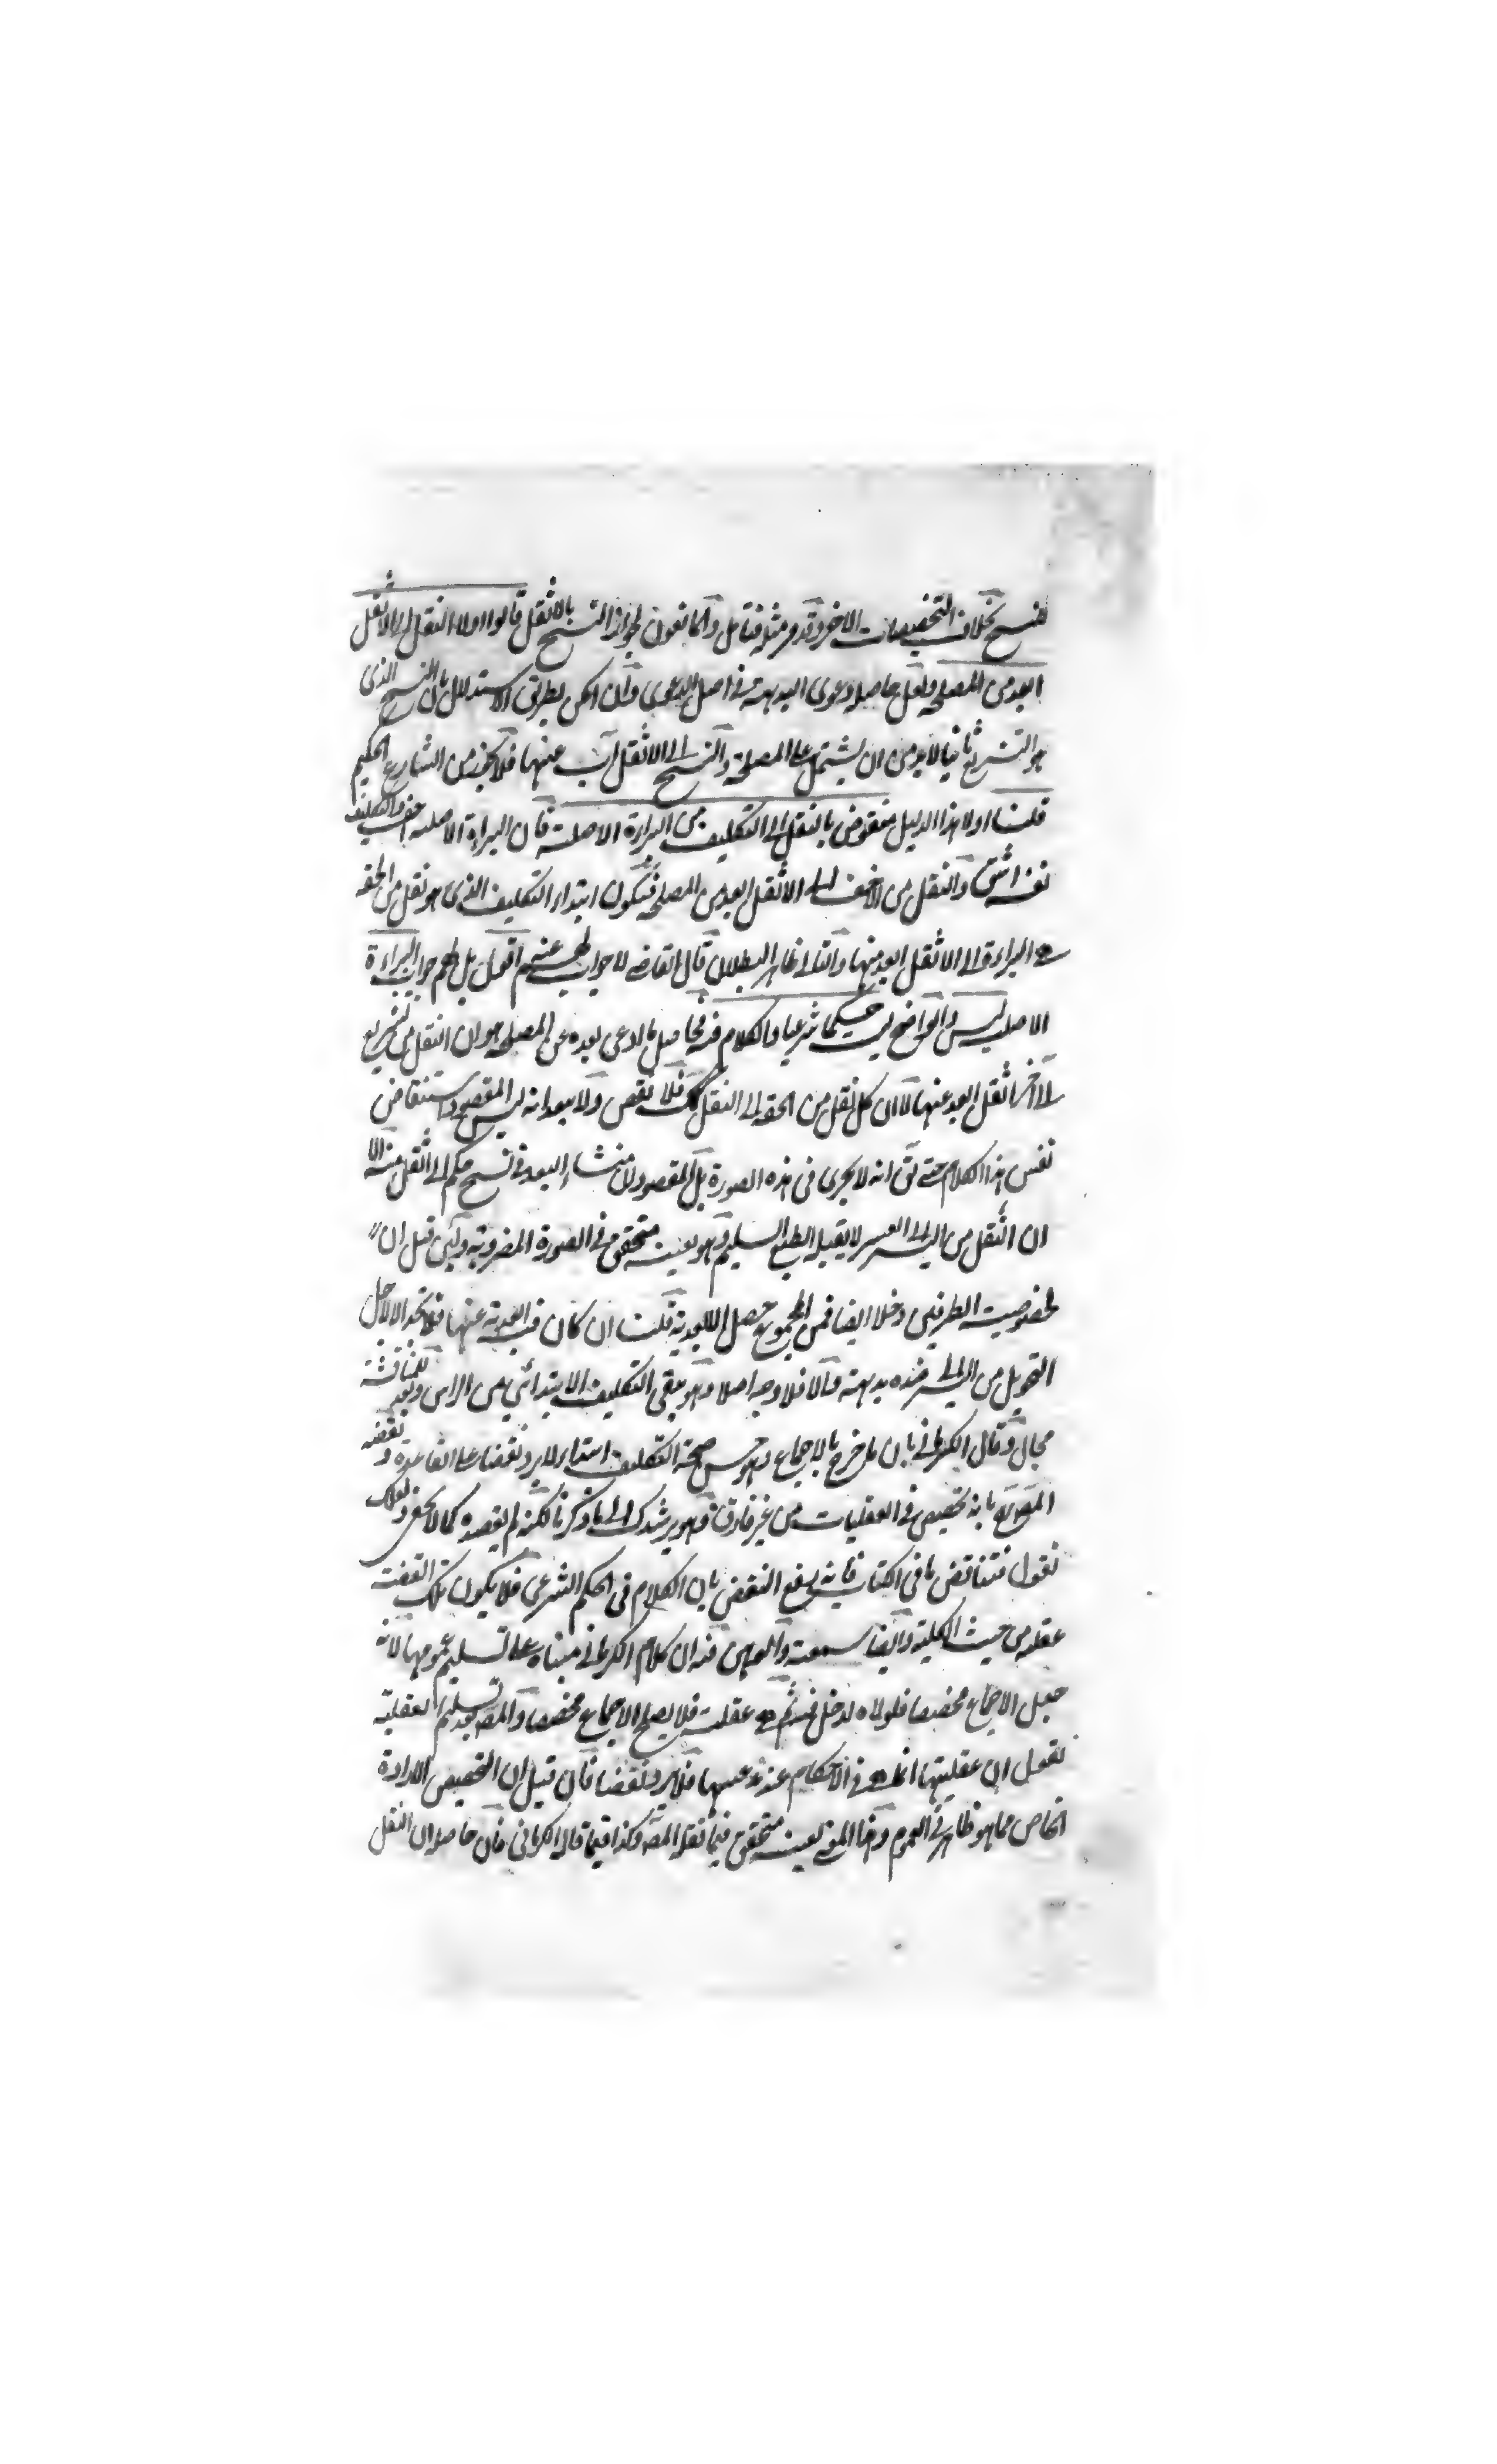 للنسخ بخلاف التخصيصات الاخر وقد مر مثله فتامل والمانعون لجواز النسخ بالاثقل قالوا اولا النقل الى الاثقل
ابعد من المصلحة ولعل حاصله دعوى البديهة في اصل الدعوى وان امكن بطريق الاستدلال بان النسخ الذي
هو التشريع ثانيا لا بد من ان يشتمل على المصلحة والنسخ الى الاثقل آب عنها فلا يجوز من الشارع الحكيم
قلنا اولا هذا الدليل منقوض بالنقل الى التكليف من البراءة الاصلية فان البراءة الاصلية اخف والتكليف
نفسه اشق والنقل من الاخف الى الاثقل ابعد من المصلحة فيكون ابتداء التكليف الذي هو نقل من الخفة
هي البراءة الى الاثقل ابعد منها والتالي ظاهر البطلان قال القاضي لا جواب لهم عنه اقول بل لهم جواب البراءة
الاصلية ليس والواضح ليست حكما شرعيا والكلام فيه فحاصل ما ادعى بعده عن المصلحة هو ان النقل من تشريع
الى آخر اثقل ابعد عنها لا ان كل نقل من الخفة الى الثقل كك فلا نقض ولا يبعد انه ليس المقصود استنقاض
نفس هذا الكلام حتى يق انه لا يجري في هذه الصورة بل المقصود ان منشاء البعد في نسخ حكم الى اثقل منه الا
ان النقل من اليسر الى العسر لا يقبله الطبع السليم وهو بعينه متحقق في الصورة المضروبة ولئن قيل ان
لخصوصية الطرفين دخلا ايضا فمن المجموع حصل الابعدية قلت ان كان فيه ابعدية عنها فلا تحد الا لاجل
التحويل من اليسر الى ضده بديهة والا فلا وجه اصلا وهو يبقى التكليف الابتدائي من الراس وبعد للمناقشة
مجال وقال الكرماني بان ما خرج بالاجماع وهو حسن صحة التكليف ابتداء لا يرد نقضا على القاعدة ونقضه
المصنف بانه تخصيص في العقليات من غير فارق وهو يرشدك الى ما ذكرنا لكنه لم يقصده كما لا يخفى ولعلك
تقول فتناقض ما في الكتاب فانه يدفع النقض بان الكلام في الحكم الشرعي فلا يكون تلك القضية
عقلية من حيث الكلية وايضا سمعته والجواب عنه ان كلام الكرماني مبناه على تسليم عمومها لانه
جعل الاجماع مخصصا فلولاه لدخل فيه ثم هي عقلية فلا يصلح الاجماع مخصصا والمصنف بعد تسليم العقلية
يقول ان عقليتها انما هي في الاحكام عند مدعيها فلا يرد نقضا فان قيل ان التخصيص الارادة
الخاص مما هو ظاهر في العموم وهذا المعنى بعينه متحقق فيما نقل المصنف وكذا فيما قال الكرماني فان حاصله ان النقل